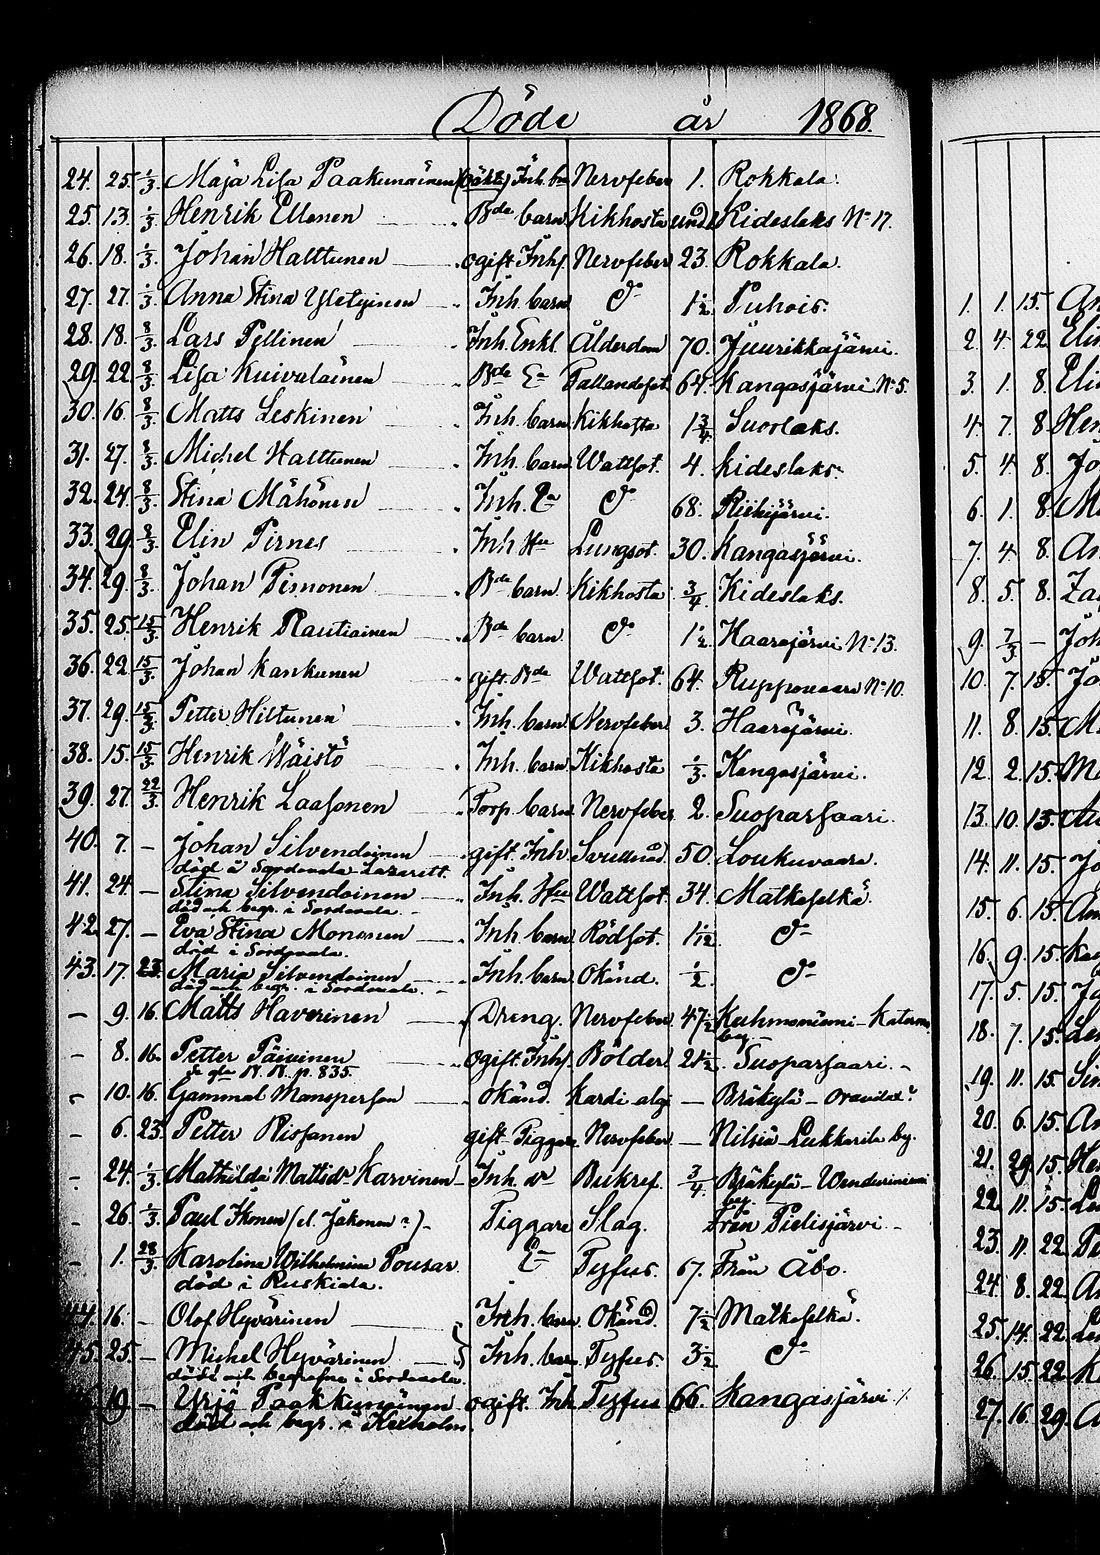 Döde år 1868.
24. 25. 1/3. Maja Lisa Paakunainen Inh. b. Nervfeber 1. Rokkala.
25. 13. 1/3. Henrik Ellonen Bde barn Kikhosta und. 1 Kideslaks No 17.
26. 18. 1/3. Johan Halttunen ogift Inh. Nervfeber 23. Rokkala.
27. 27. 1/3. Anna Stina Inh. barn d:o 1 1/2. Puhois.
28. 18. 8/3. Lars Pellinen Inh. Enkl. Ålderdom 70. Juurikkajärvi.
29. 22. 8/3. Lisa Kuivalainen Bde Ea Fallandesot 64. Kangasjärvi No 5.
30. 16. 8/3. Matts Leskinen Inh. barn Kikhosta 1 3/4. Suorlaks.
31. 27. 8/3. Michel Halttunen Inh. barn Wattsot. 4. Kideslaks.
32. 24. 8/3. Stina Mähönen Inh. Ea d:o 68. Riihijärvi.
33. 29. 8/3. Elin Pirnes Inh. Hu Lungsot. 30. Kangasjärvi.
34. 29. 8/3. Johan Pimonen Bde barn Kikhosta 3/4. Kideslaks.
35. 25. 15/3. Henrik Rautiainen Bde barn d:o 1 1/2. Haarajärvi No 13.
36. 22. 15/3. Johan Kankunen gift. Bde Wattsot. 64. Ruppovaara No 10.
37. 29. 15/3. Petter Hiltunen Inh. barn Nervfeber 3. Haarajärvi.
38. 15. 15/3. Henrik Wäistö Inh. barn Kikhosta 1/3. Kangasjärvi.
39. 27. 22/3. Henrik Laasonen Torp. barn Nervfeber 2. Suoparsaari.
40. 7. – Johan Silvendoinen gift. Inh. 50. Loukuvaara.
död å Sordavala Lazarett.
41. 24. – Stina Silvendoinen Inh. Hu Wattsot. 34. Matkaselkä.
död och begr. i Sordavala.
42. 27. – Eva Stina Mononen Inh. barn Rödsot. 1 1/12. d:o
död i Sordavala.
43. 17. 23. Maria Silvendoinen Inh. barn Okänd. 1/2. d:o
död och begr. i Sordavala.
– 9. 16. Matts Haverinen Dreng. Nervfeber 47 1/2 Kuhmoniemi – Katerma
by.
– 8. 16. Petter Päivinen ogift. Inh. Bölder 21 1/2. Suoparsaari.
p. 835.
– 10. 16. Gammal Mansperson Okänd. – Bräkylä – Oravilax?
– 6. 23. Petter Rissanen gift. Tiggare Nervfeber – Nilsiä Lukkarila by.
– 24. 1/3. Mathilda Mattsdr Karvinen Inh. dr 3/4. Bräkylä – Wenderiniemi
by.
– 26. 1/3. Paul Ikonen (el. Jakonen?) – Tiggare Slag. Från Pielisjärvi.
– 1. 28/3. Karolina Wilhelmina Pousar Ea Tyfus. 67. Från Åbo.
död i Ruskiala.
44. 16. – Olof Hyvärinen Inh. barn Okänd. 7 1/2 Matkaselkä.
45. 25. – Michel Hyvärinen Inh. barn Tyfus. 3 1/2 d:o
döde och begrafne i Sordavala.
46. 19. – Yrjö Paakkunainen ogift. Inh. Tyfus 66. Kangasjärvi
död och begr. i Kexholm.
1. 1. 15.
2. 4. 22.
3. 1. 8.
4. 7. 8.
5. 4. 8.
6. 1. 8.
7. 4. 8.
8. 5. 8.
9. 7/3 –
10. 7. 15.
11. 8. 15.
12. 2. 15.
13. 10. 15.
14. 11. 15.
15. 6. 15.
16. 9. 15.
17. 5. 15.
18. 7. 15.
19. 11. 15.
20. 6. 15.
21. 29. 15.
22. 11. 15.
23. 11. 22.
24. 8. 22.
25. 14. 22.
26. 15. 22.
27. 16. 29.